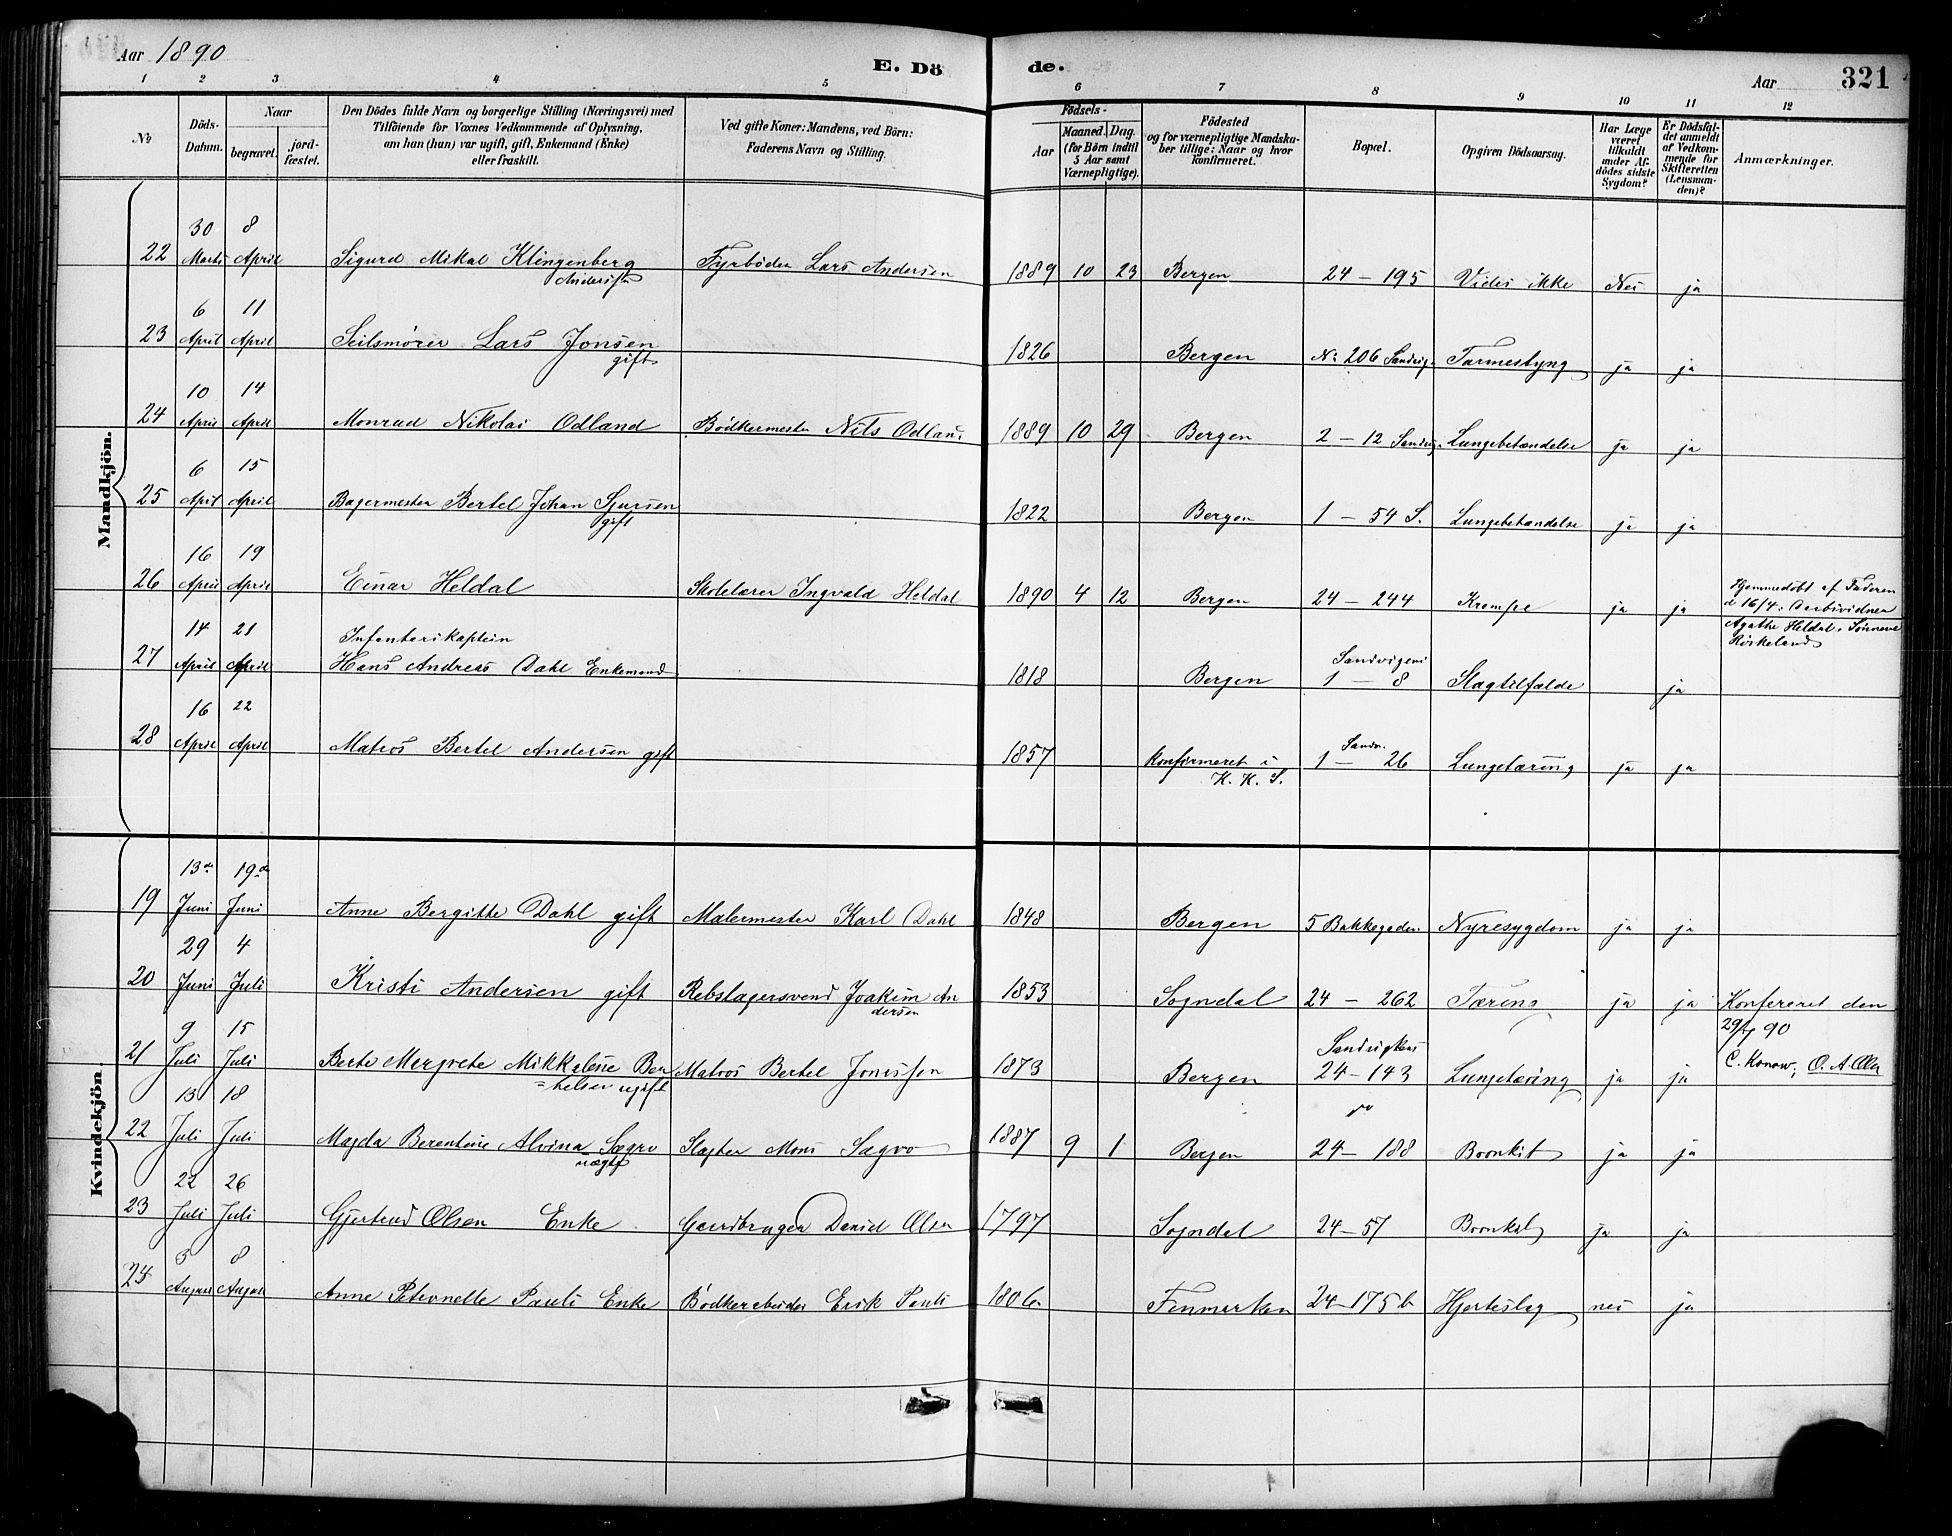 Aar 1890
E. Dö
de.
Aar
321
1 2 3 4 5 6 7 8 9 10 11 12
No
Döds-Datum.
Naar
begravet.
jord-fæstet.
Den Dödes fulde Navn og borgerlige Stilling (Næringsvei) med
Tilföiende for Voxnes Vedkommende af Oplysning,
om han (hun) var ugift, gift, Enkemand (Enke)
eller fraskilt.
Ved gifte Koner: Mandens, ved Börn:
Faderens Navn og Stilling.
Födsels-
Aar
Maaned. Dag.
(for Börn indtil
5 Aar samt
Værnepligtige).
Födested
og for værnepligtige Mandska-
ber tillige: Naar og hvor
konfirmeret.
Bopæl.
Opgiven Dödsaarsag.
Har Læge
været
tilkaldt
under Af-
dödes sidste
Sygdom?
Er Dödsfal-
det anmeldt
af Vedkom-
mende for
Skifteretten
(Lensman-
den)?
Anmærkninger.
Mandkjön.
30 8
22 Marts April Sigurd Mikal Klingenberg Fyrböder Lars Andersen 1889 10 23 Bergen 24 - 195 Vides ikke Nei ja
Andersen
6 11
23 April April Seilsmører Lars Jonsen 1826 Bergen No 206 Sandvig Tarmeslyng ja ja
gift
10 14
24 April April Monrad Nikolai Odland Bödkermester Nils Odland 1889 10 29 Bergen 2 - 12 Sandvig Lungebetændelse ja ja
6 15
25 April April Bagermester Bertel Johan Sjursen 1822 Bergen 1 - 54 S. Lungebetændelse ja ja
gift
16 19
26 April April Einar Heldal Skolelærer Ingvald Heldal 1890 4 12 Bergen 24 - 244 Krampe ja ja Hjemmedöbt af Faderen
d 16/4: Daabsvidner
Agathe Heldal, Sönneve
Röskeland
14 21 Infanterikaptein
27 April April Hans Andreas Dahl Enkemand 1818 Bergen Sandvigen 1 - 8 Slagtilfælde ja
16 22
28 April April Matros Bertel Andersen gift 1857 Konfirmeret i Sandv. 1 - 26 Lungetæring ja ja
K. K. S.
Kvindekjön.
13de 19de
19 Juni Juni Anne Bergitte Dahl gift Malermester Karl Dahl 1848 Bergen 5 Bakkegaden Nyresygdom ja ja
29 4
20 Juni Juli Kristi Andersen gift Rebslagersvend Joakim An 1853 Sogndal 24 - 262 Tæring ja ja Konfereret den
dersen
29/7 90
9 15
21 Juli Juli Berte Mergrete Mikkeline Ber Matros Bertel Jonssen 1873 Bergen 24 - 143 Lungetæring ja ja C. Konow, O. A. Olsen
=telsen ugift
13 18
22 Juli Juli Magda Berentine Alvina Sægro Slagter Mons Sægro 1887 9 1 Bergen do 24 - 188 Bronkit ja ja
22 26
23 Juli Juli Gjertrud Olsen Enke Gaardbruger Daniel Olsen 1797 Sogndal 24 - 57 Bronkit ja ja
5 8
24 August August Anne Peternelle Pauli Enke Bödkerarbeider Erik Pauli 1806 Finmarken 24 - 175 b Hjerteslag nei ja